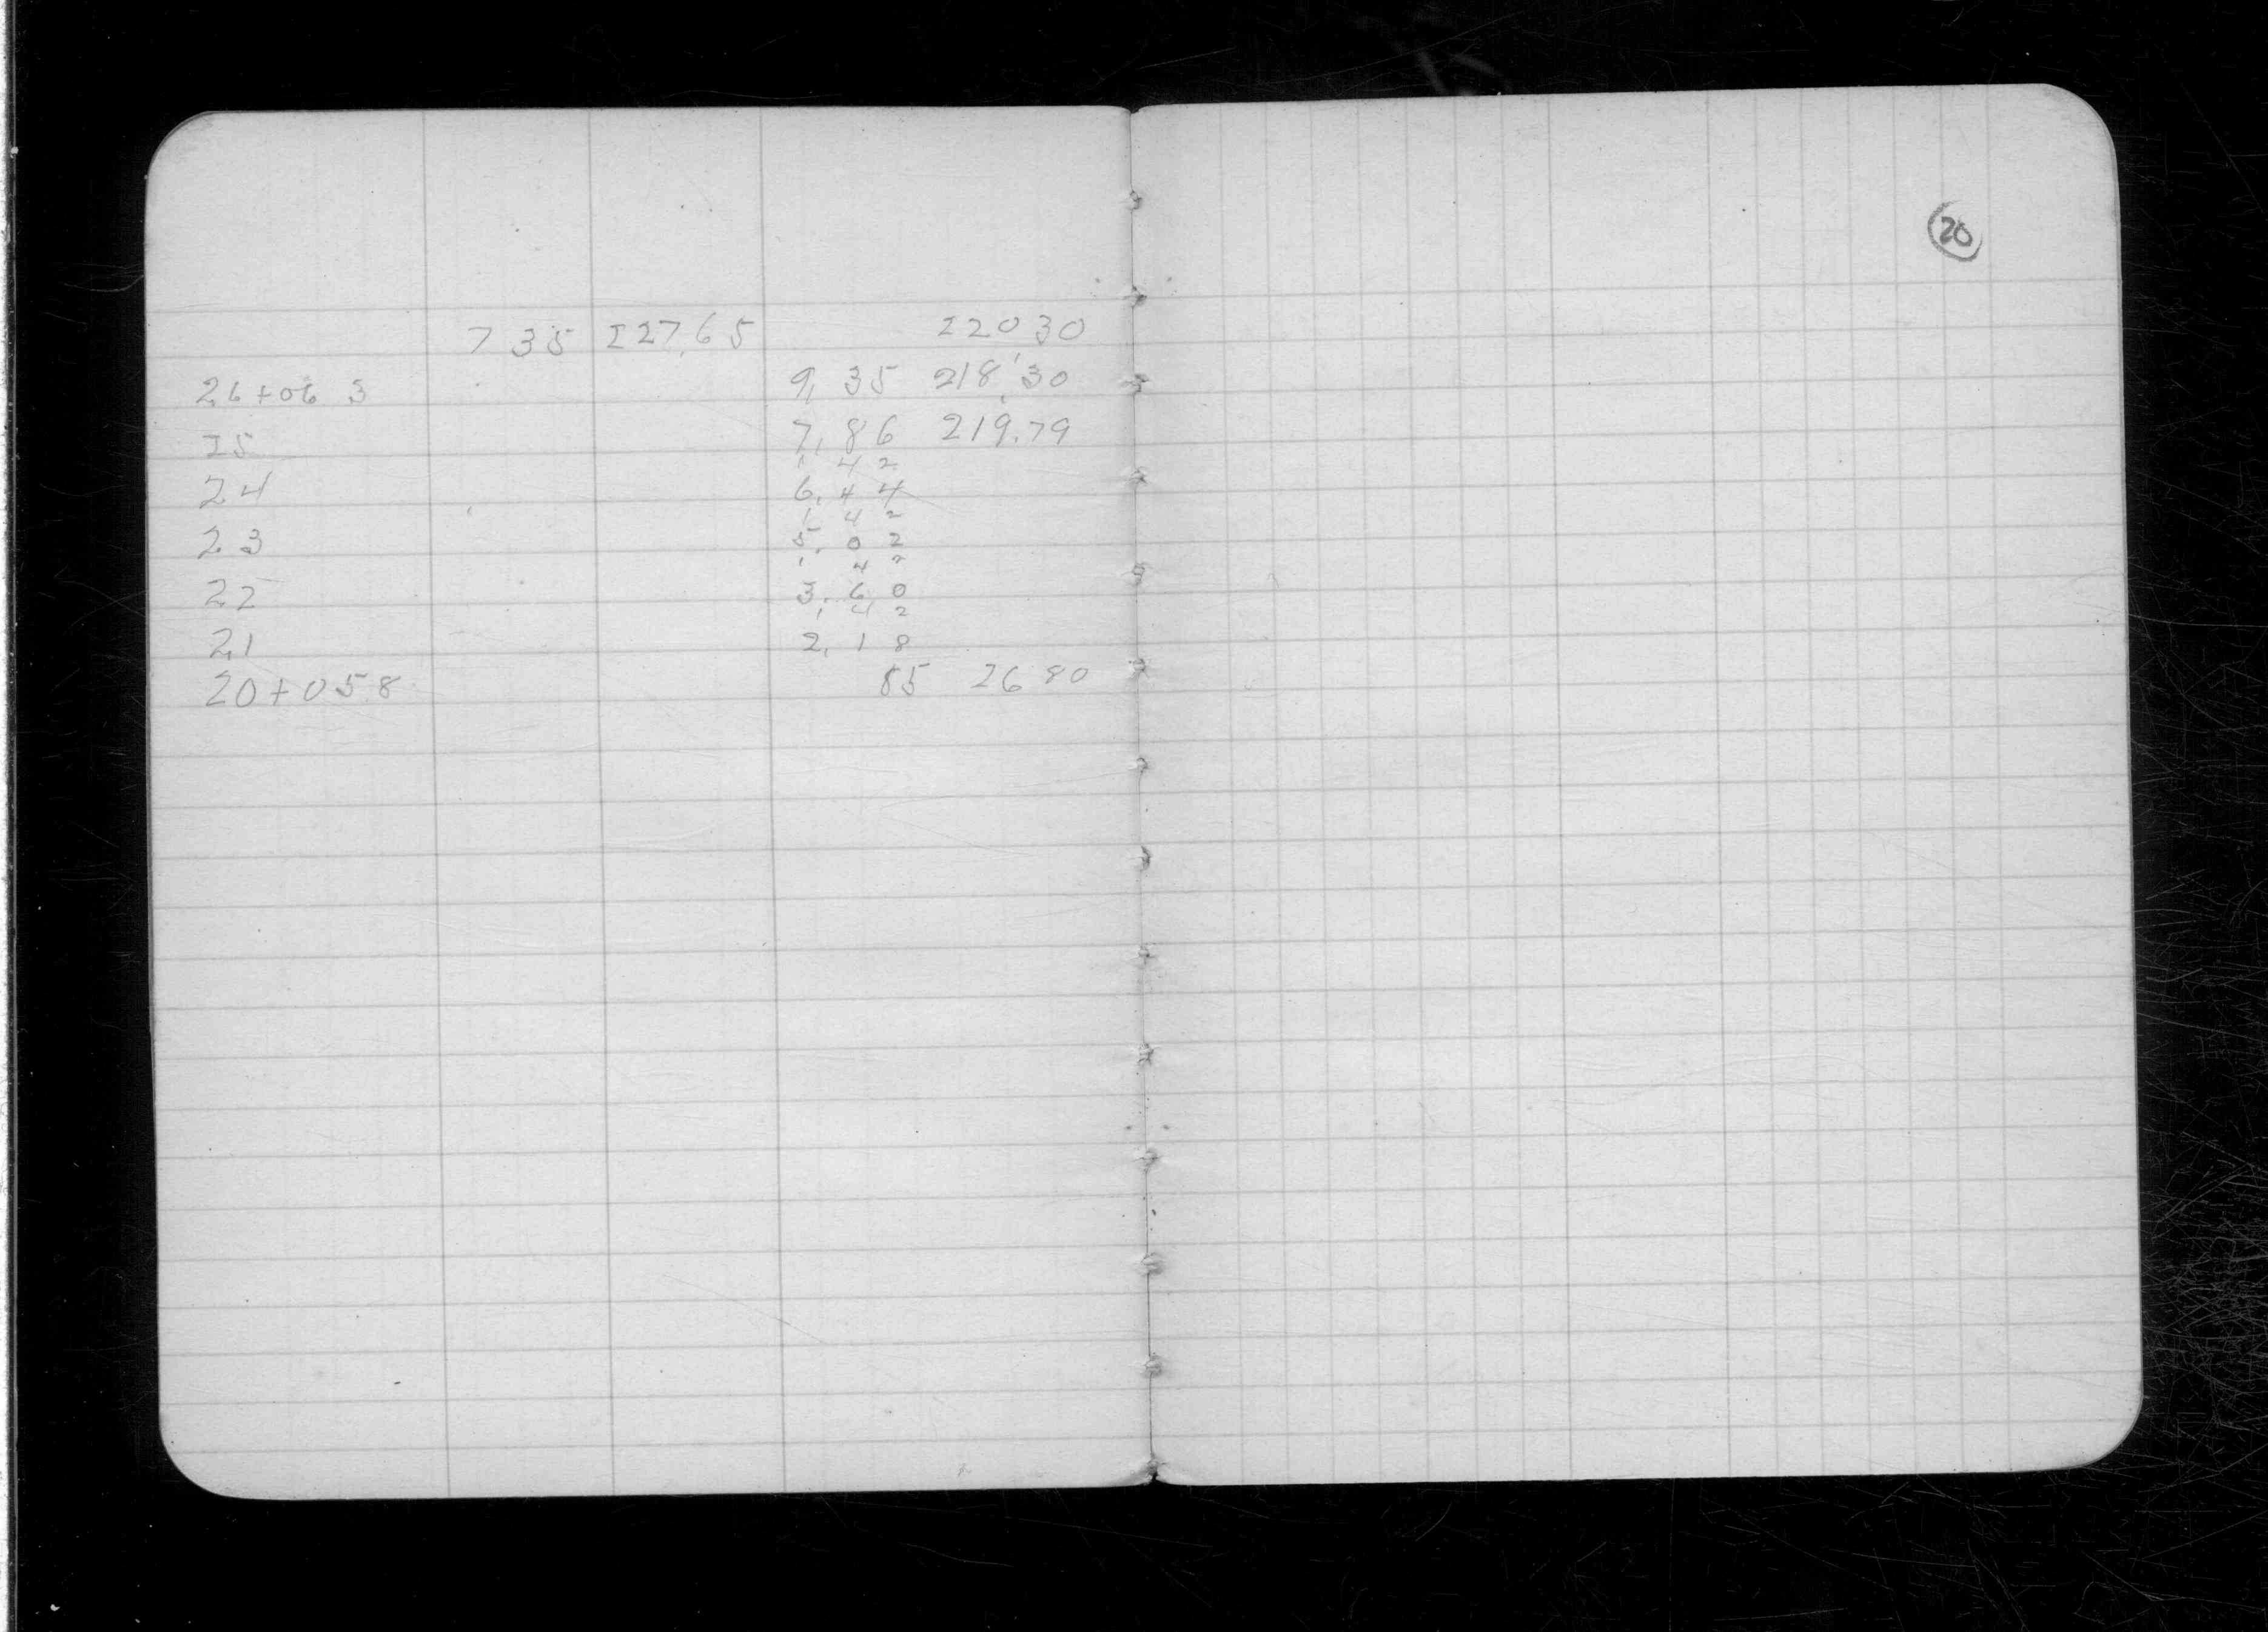 20
7 35 227.65 220 30
26+06 3 9, 35 218.30
25 7, 86 219.79
1 42
24 6, 44
1 42
23 5, 02
1 42
22 3, 60
1 42
21 2, 18
20+058 85 26 80